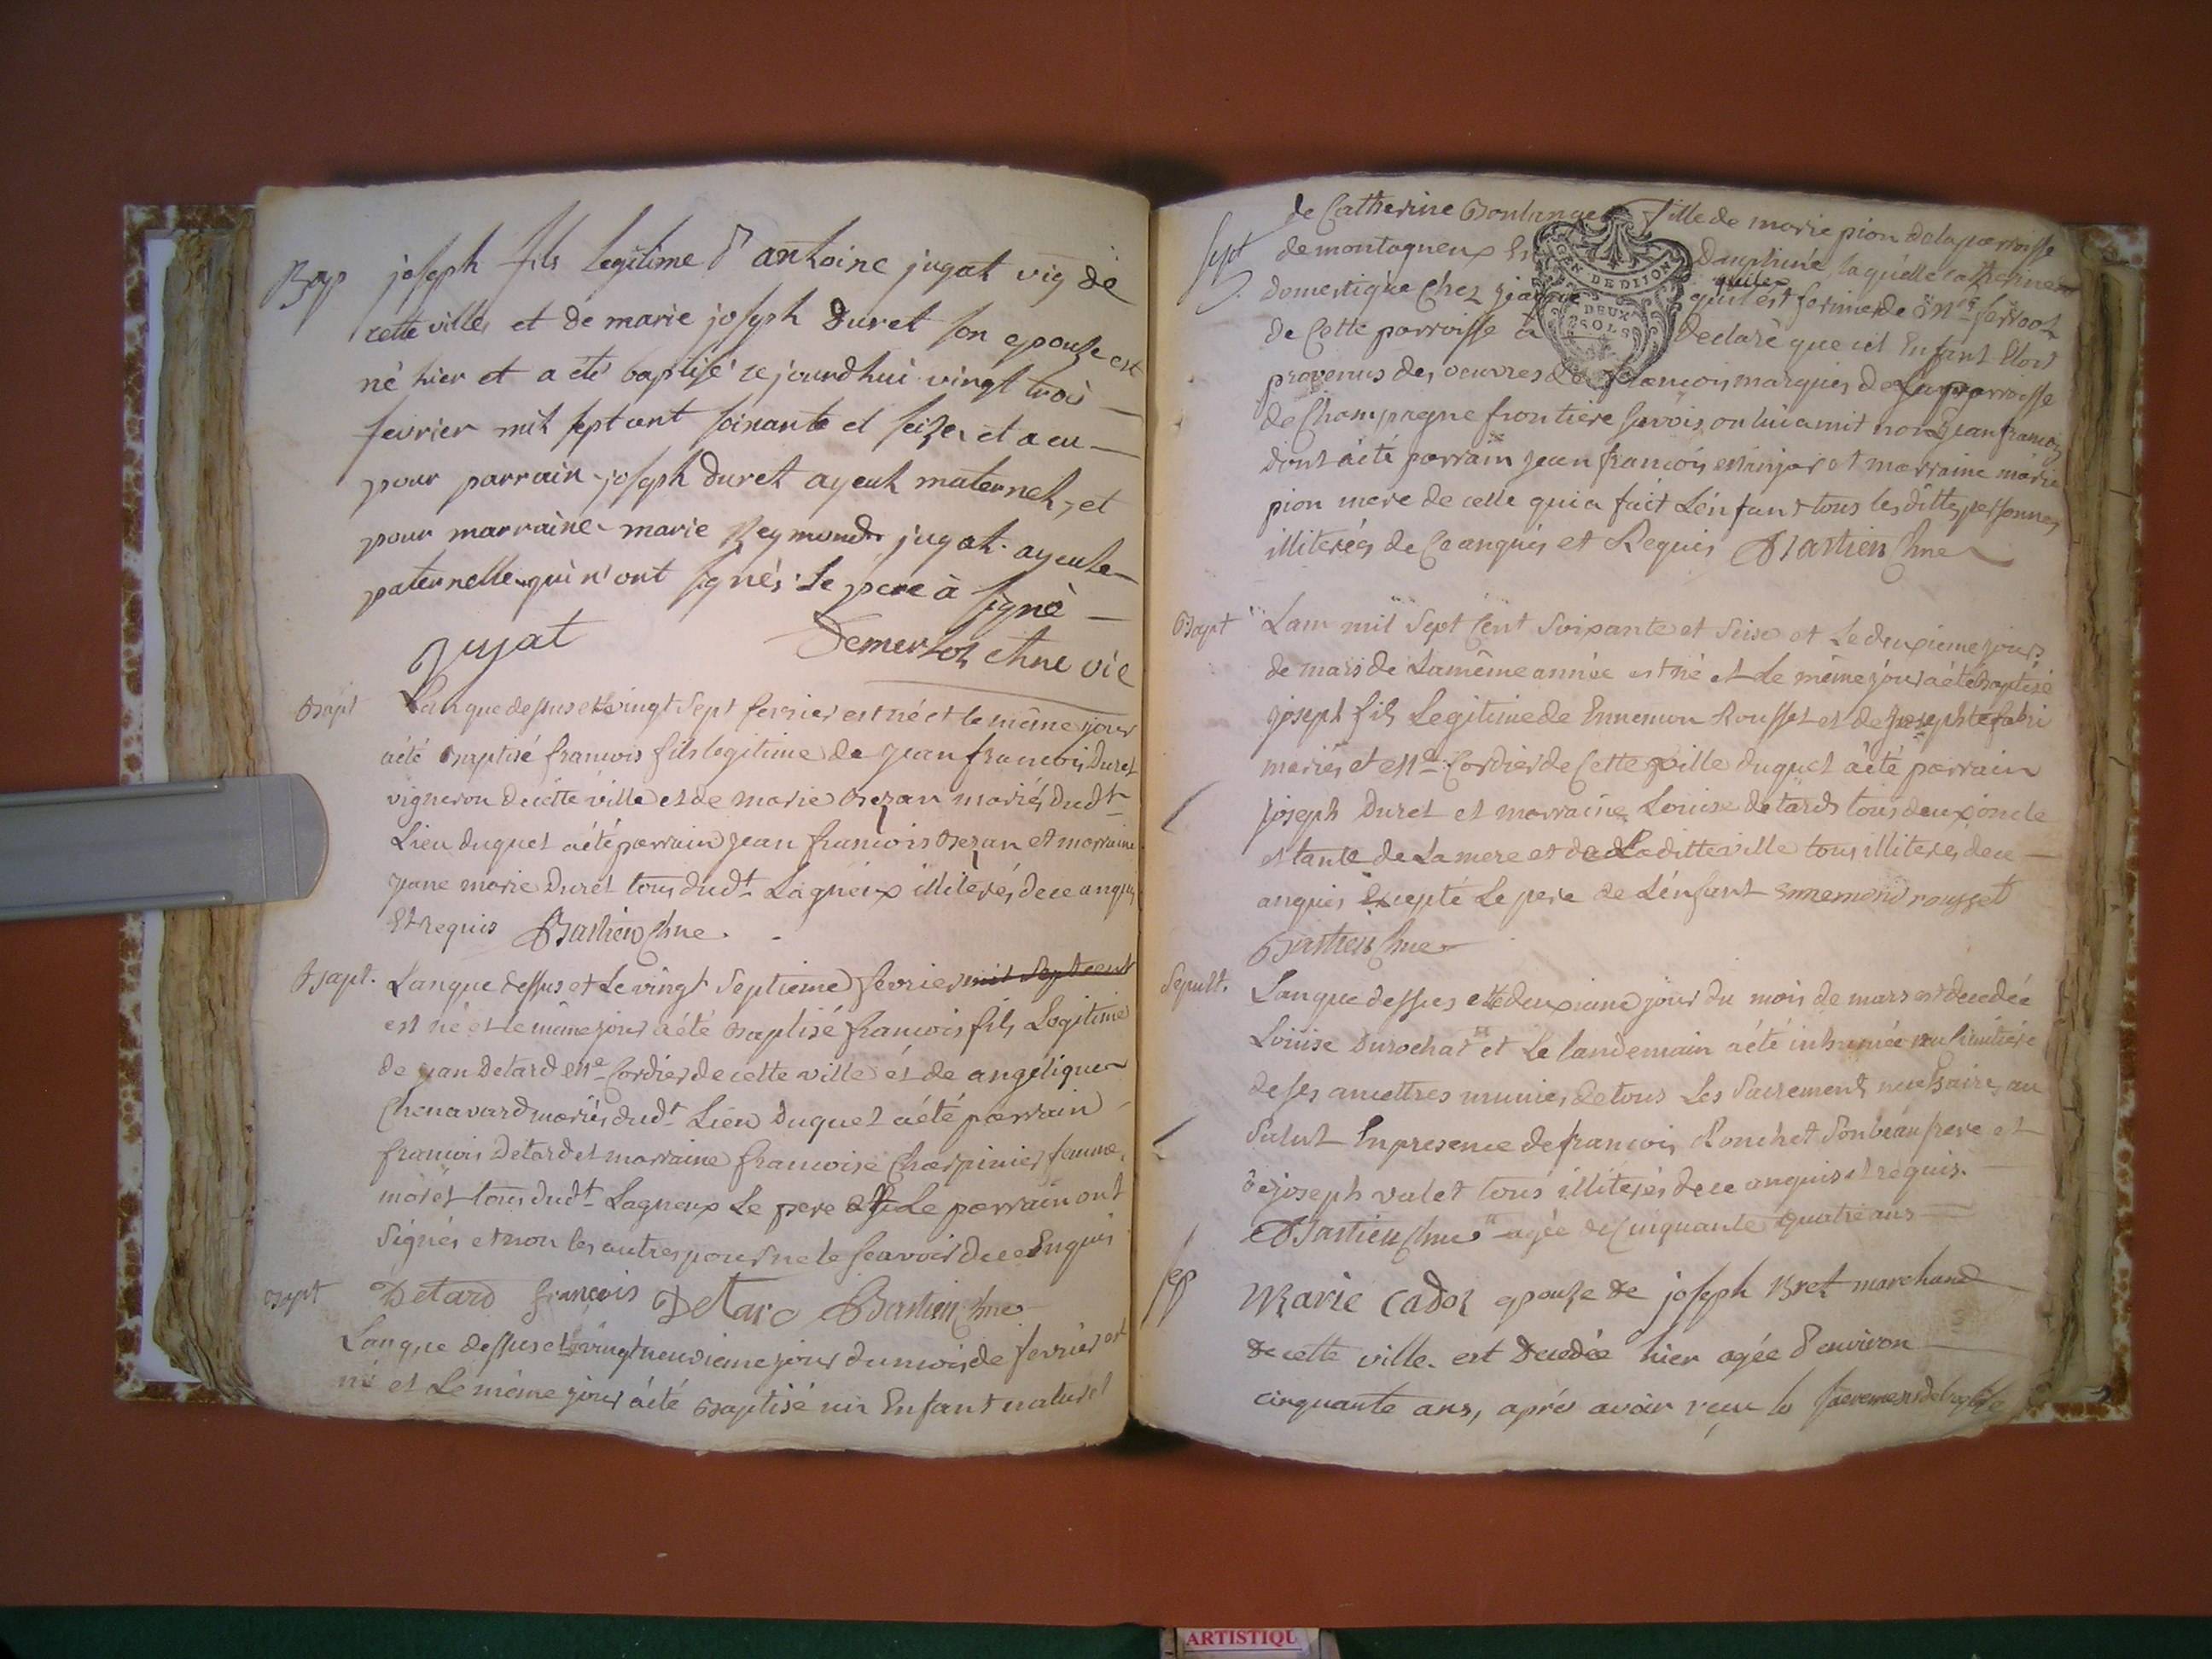 Bap joseph fils legitime d'antoine jugat vig de
cette ville, et de marie joseph Duret son epouse est
né hier et a été baptisé ce jourdhui vingt trois
fevrier mil sept cent soixante et seize, et a eu
pour parrain joseph duret ayeul maternel, et
pour marraine marie Reymond jugat ayeule
paternelle qui n'ont signés. Le pere à signé
Jugat vic
Bapt Lan que dessus et le vingt Sept fevrier est né et le même jour
aété Baptisé francois fils legitime de jean francois Duret
vigneron decette ville et de marie Bezan mariés dudt
Lieu duquel aété parrain jean francois Bezan et marraine
jeane marie Duret tous dudt Lagneux illiterés dece anquis
Et requis Bastien
Bapt. Lan que dessus et Le vingt Septieme fevrier mil Sept cent
est né et le même jour aété Baptisé francois fils Legitime
de jean Detard Me Cordier de cette ville et de angelique
Chenavard mariés dudt Lieu Duquel aété parrain
francois Detard et marraine francoise Charpinier femme
moret tous dudt Lagneux Le pere et Le parrain ont
Signés et non les autres pour ne le scavoir dece Enquis
Detard françois Detard Bastien
Bapt
Lan que dessus et le vingt neuvieme jour du mois de fevrier est
né et Le même jour aété Baptisé un Enfant naturel
de Catherine Boulange fille de marie pion de la parroisse
Sept de montagneux En Dauphiné, laquelle catherine
GEN. DE DIJON
DEUX SOLS
domestique chez
de Cette parroisse à Declaré que cet Enfant Etoit
provenus des oeuvres de francois marquis de la parroisse
de Champagne frontiere Savois, on lui a mit nom Jean francois
dont aété parrain jean francois et marraine marie
pion mere de celle qui a fait L'enfant tous les dittes personnes
illiterés de Ce anquis et Requis Bastien
Bapt Lan mil Sept Cent Soixante et Seise et Le deuxieme jour
de mars de La même année est né et Le même jour aété Baptisé
joseph fils Legitime de Ennemon Rousset et de josephte fabri
mariés et Me Cordier de Cette ville duquel aété parrain
joseph Duret et marraine Louise detard tous deux oncle
et tante de La mere et de La ditte ville tous illiteres dece
anquis Excepté Le pere de L'enfant Ennemond rousset
Bastien
Sepult. Lan que dessus et le deuxieme jour du mois de mars est decedée
Louise Durochat et Le landemain aété inhumée au Cimitiere
de ses ancettres munie, de tous Les Sacrements necessaires au
Salut En presence de francois Ronchet Son beau frere et
de joseph valet tous illiterés de ce anquis et requis.
Bastien agée de Cinquante quatre ans
sep Marie Cadoz epouse de joseph Bret marchand
de cette ville est decedée hier agée d'environ
cinquante ans, aprés avoir reçu les sacremens de l'eglise